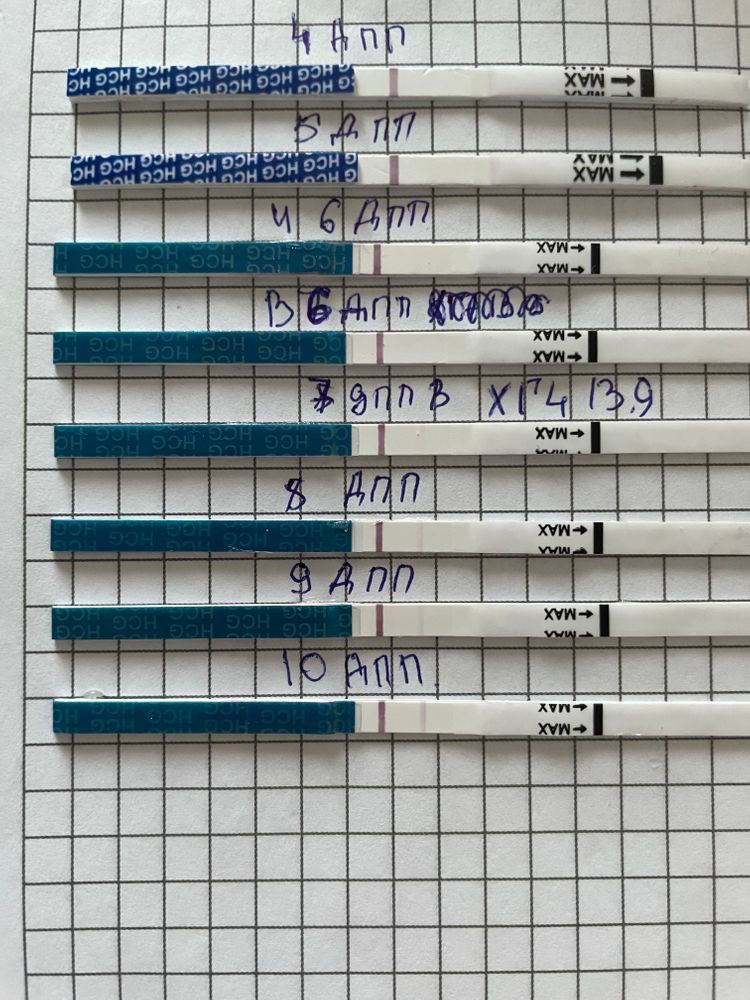 4 ДПП
HCG HCG HCG HCG HCG HCG MAX
5 ДПП
HCG HCG HCG HCG HCG HCG MAX
У 6 ДПП
HCG HCG HCG HCG HCG MAX
В 6 ДПП
HCG HCG HCG HCG HCG MAX
7 ДПП В ХГЧ 13.9
HCG HCG HCG HCG HCG MAX
8 ДПП
HCG HCG HCG HCG HCG MAX
9 ДПП
HCG HCG HCG HCG HCG MAX
10 ДПП.
HCG HCG HCG HCG HCG MAX